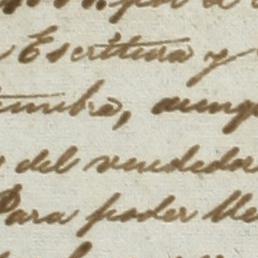 Escritura y
tumbre, aunq
del vendedor
Para poder lle